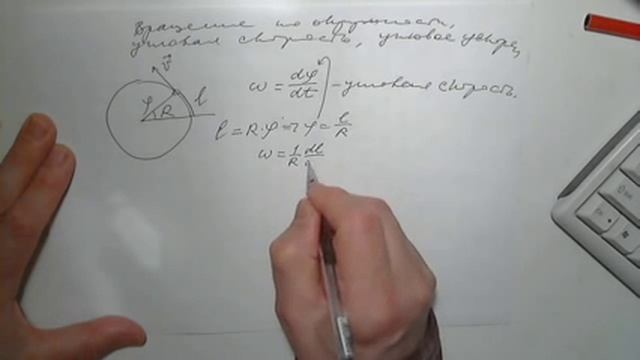 Вращение по окружности,
угловая скорость, угловое ускор.
v⃗
φ R l
ω = dφ/dt - угловая скорость.
l = R·φ => φ = l/R
ω = 1/R dl